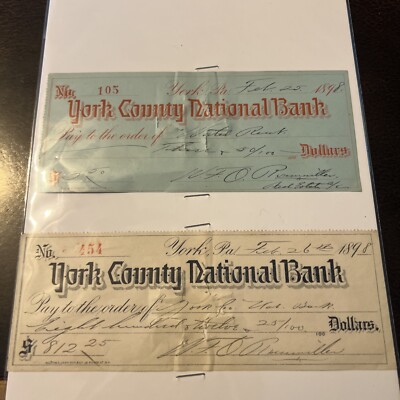 No. 105 York, Pa. Feb. 25 1898
York County National Bank
Pay to the order of Water Rent
Three & 20/100 Dollars.
$
No. 454 York, Pa. Feb 26th 1898
York County National Bank
Pay to the order of York Co Nat. Bank
Eight hundred & twelve 25/100 Dollars.
$ 812 25